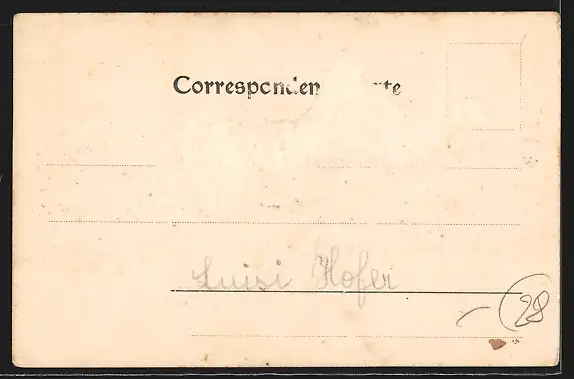 Corresponden   rte
Luisi Hofer
28